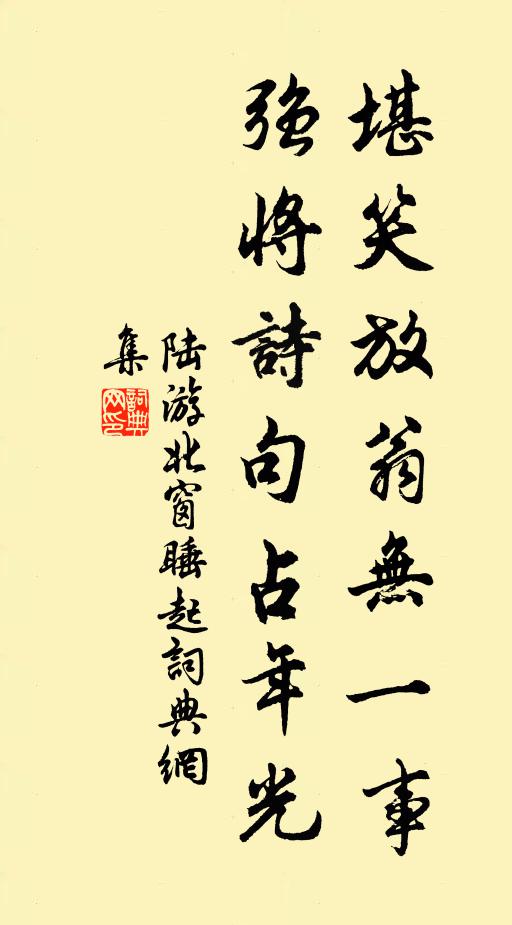 堪笑放翁無一事
强將詩句占年光
陆游北窗睡起詞典網
集
詞典
网印